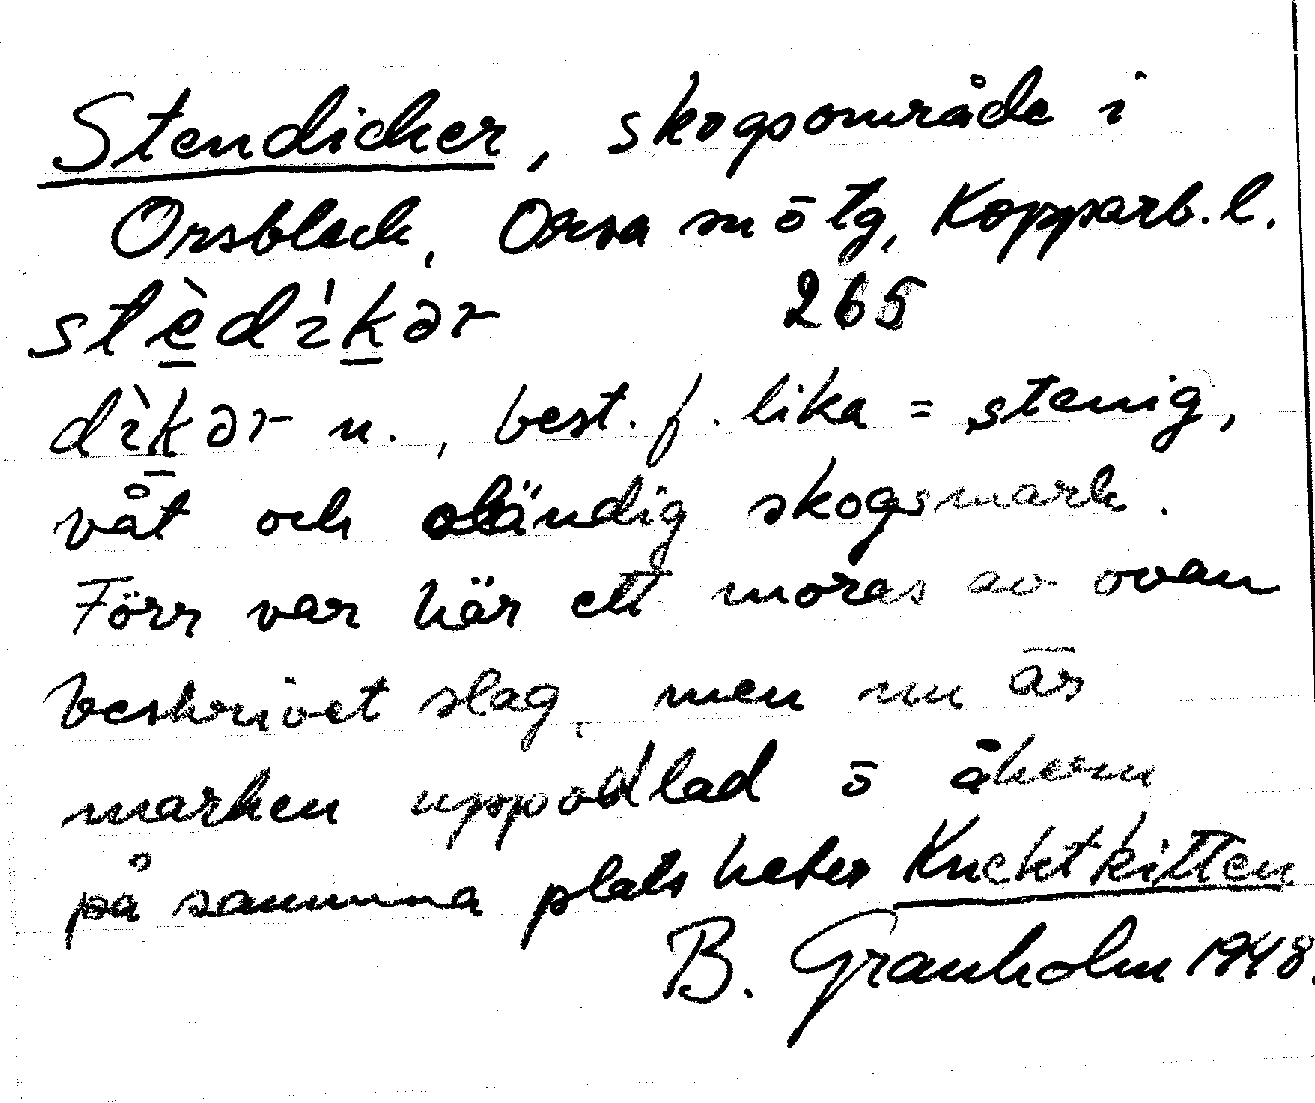 Stendicker, skogsområde i
Orsbleck, Orsa sn ō tg, Kopparb. l.
stèdíkər 265
dìkər n., best. f. lika = stenig,
våt och oländig skogsmark.
Förr var här ett moras av ovan
beskrivet slag, men nu är
marken uppodlad ō åkern
på samma plats heter Knektkitten
B. Granholm 1948.